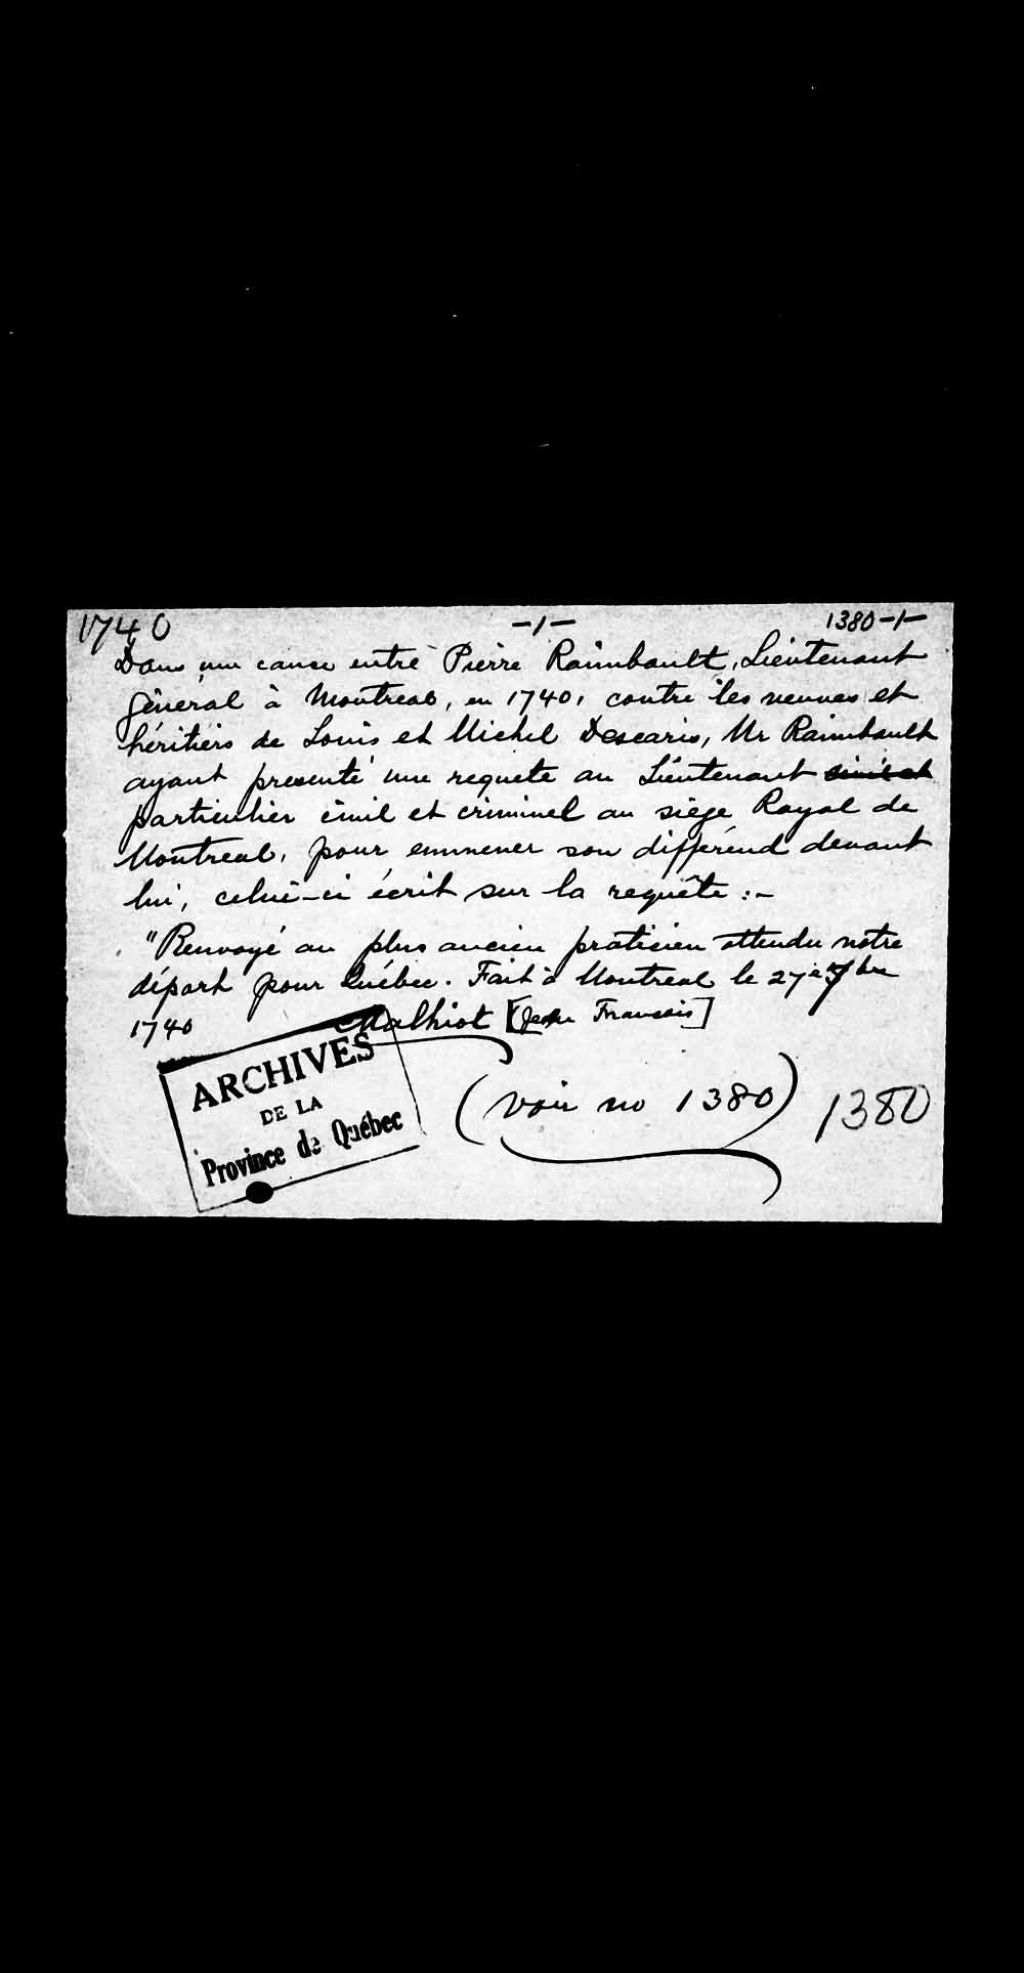 1740 -1- 1380-1-
Dans une cause entre Pierre Raimbault, Lieutenant
général à Montreal, en 1740, contre les veuves et
héritiers de Louis et Michel Descaris, Mr Raimbault
ayant presenté une requete au Lieutenant civil et
particulier civil et criminel au siège Royal de
Montreal, pour emmener son différend devant
lui, celui-ci écrit sur la requête :-
"Renvoyé au plus ancien praticien attendu notre
départ pour Québec. Fait à Montreal le 27e 7bre
1740 Malhiot [Jean François]
ARCHIVES
DE LA
Province de Québec
(voir no 1380) 1380